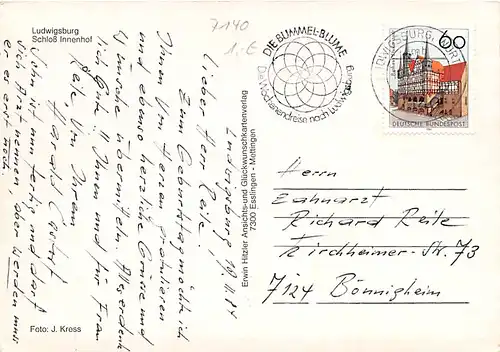 Ludwigsburg
Schloß Innenhof
7140
1,-€
DIE BUMMEL-BLUME
Die Wochenendreise nach Ludwigsburg
LUDWIGSBURG, WÜRTT
60
DEUTSCHE BUNDESPOST
Ludwigsburg 19.11.84
Lieber Herr Reile!
Zum Geburtstag möcht ich
Ihnen von Herzen gratulieren
und ebenso herzliche Grüsse und
Wünsche übermitteln. Alles erdenk
lich Gute!! Ihnen und für Frau
Reile, von Ihrem
Harald
John ist nun fertig und darf
sich Arzt nennen, aber werden muss
er es erst noch.
Erwin Hitzler Ansichts-und Glückwunschkartenverlag
7300 Esslingen - Mettingen
Herrn
Zahnarzt
Richard Reile
Kirchheimer-Str. 73
7124 Bönnigheim
Foto: J. Kress